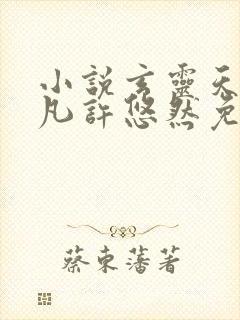 小說玄靈天
凡許悠然免
蔡東藩著